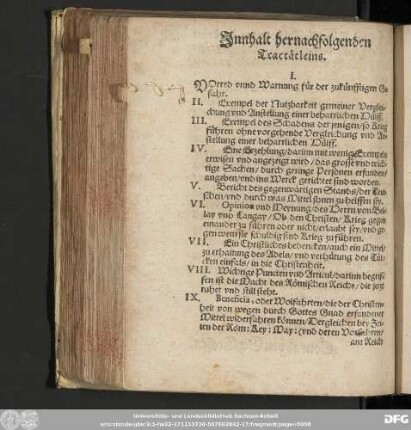 Innhalt hernachfolgenden
Tractätleins.
I.
VOrred vnnd Warnung für der zukünfftigen Ge-
fahr.
II. Exempel der Nutzbarkeit gemeiner Verglei-
chung vnd Anstellung einer beharrlichen Hülff.
III. Exempel des Schadens der jenigen / so Krieg
führen ohne vorgehende Vergleichung vnd An-
stellung einer beharlichen Hülff.
IV. Eine Erzehlung / darinn mit wenig Exempeln
erwisen vnd angezeigt wird / das grosse vnd wich-
tige Sachen / durch geringe Personen erfunden /
angeben / vnd ins Werck gerichtet sind worden.
V. Bericht des gegenwärtigen Stands / der Teut-
schen / vnd durch was Mittel ihnen zu helffen sey.
VI. Opinion vnd Meynung / des Herrn von Bel-
lay vnd Langay / Ob den Christen / Krieg gegen
einander zu führen oder nicht / erlaubt sey / vnd ge-
gen wem sie schuldig sind Krieg zu führen.
VII. Ein Christliches bedencken / auch ein Mittel /
zu erhaltung des Adels / vnd verhütung des Tür-
cken einfals / in die Christenheit.
VIII. Wichtige Puncten vnd Articul / darinn begrif-
fen ist die Macht des Römischen Reichs / die jetzt
ruhet vnd still steht.
IX. Beneficia, oder Wolfahrten / die der Christen-
heit von wegen durch Gottes Gnad erfundener
Mittel widerfahren können / Dergleichen bey Zei-
ten der Röm: Key: May: (vnd deren Vorfahren /
am Reich
Universitäts- und Landesbibliothek Sachsen-Anhalt
DFG